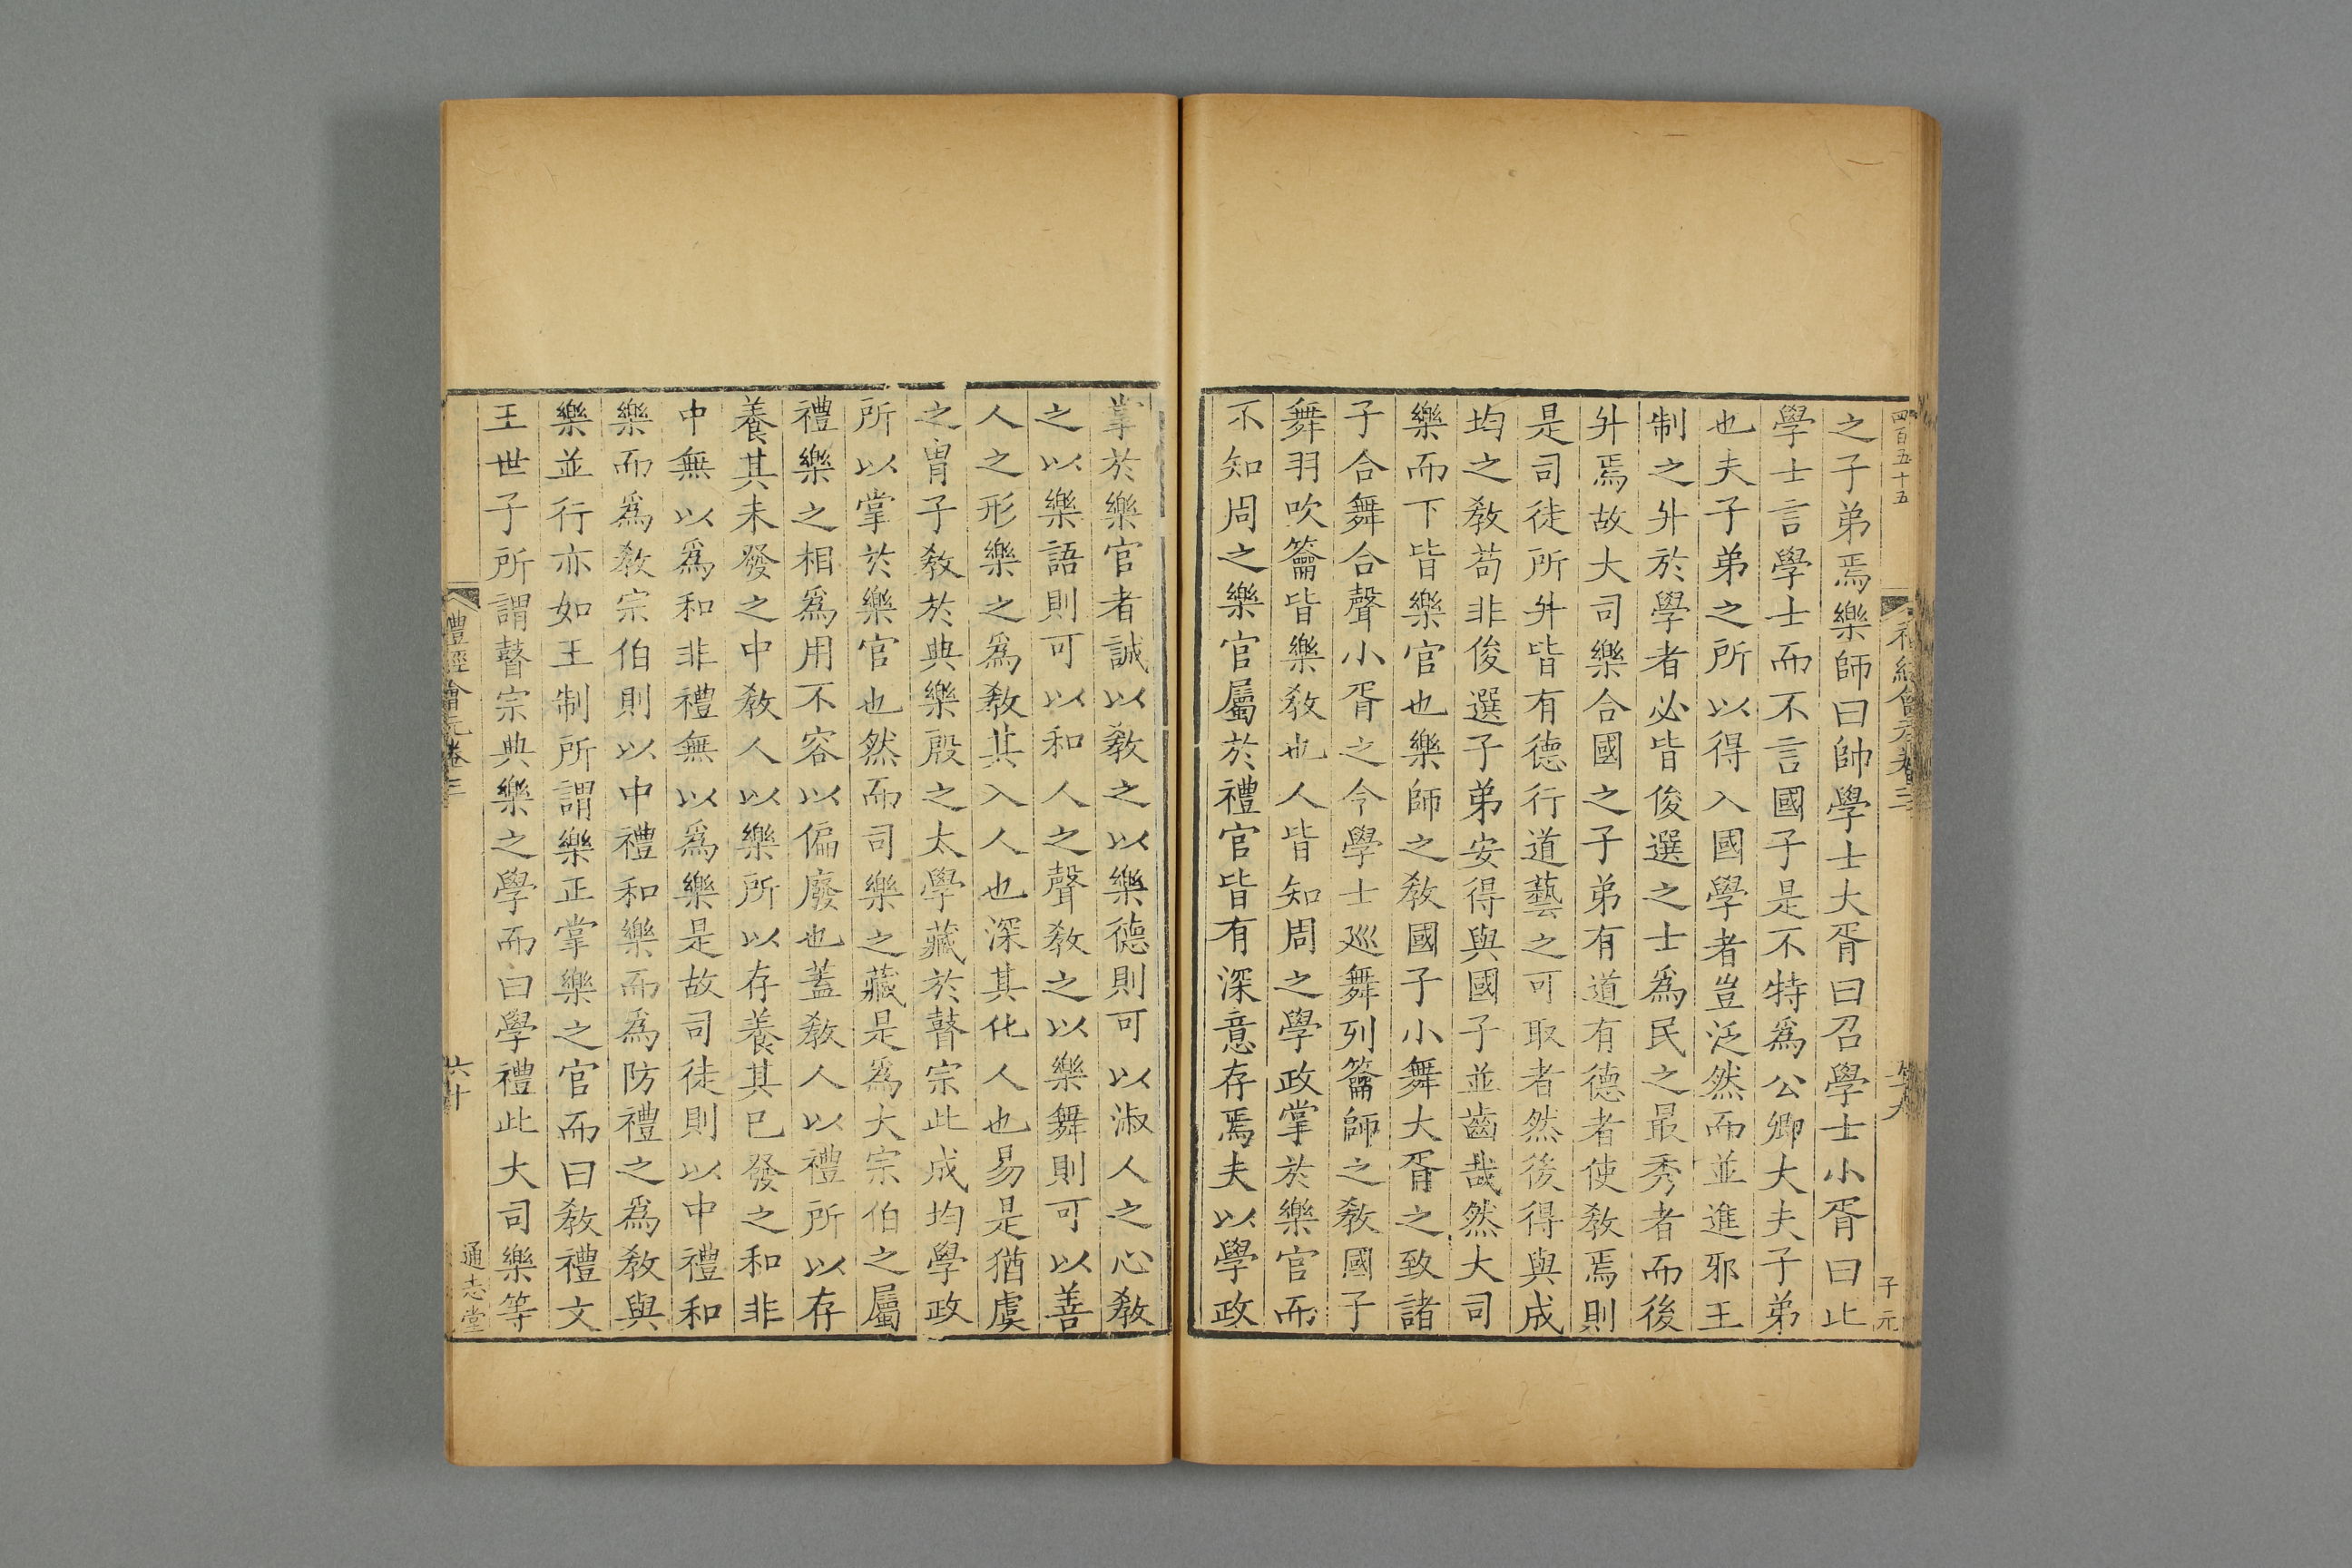 四百五十五
子元
之子弟焉樂師曰帥學士大胥曰召學士小胥曰此
學士言學士而不言國子是不特爲公卿大夫子弟
也夫子弟之所以得入國學者豈泛然而並進邪王
制之升於學者必皆俊選之士爲民之最秀者而後
升焉故大司樂合國之子弟有道有德者使敎焉則
是司徒所升皆有德行道藝之可取者然後得與成
均之敎苟非俊選子弟安得與國子並齒哉然大司
樂而下皆樂官也樂師之敎國子小舞大胥之致諸
子合舞合聲小胥之令學士巡舞列籥師之敎國子
舞羽吹籥皆樂敎也人皆知周之學政掌於樂官而
不知周之樂官屬於禮官皆有深意存焉夫以學政
掌於樂官者誠以敎之以樂德則可以淑人之心敎
之以樂語則可以和人之聲敎之以樂舞則可以善
人之形樂之爲敎其入人也深其化人也易是猶虞
之冑子敎於典樂殷之太學藏於瞽宗此成均學政
所以掌於樂官也然而司樂之藏是爲大宗伯之屬
禮樂之相爲用不容以偏廢也蓋敎人以禮所以存
養其未發之中敎人以樂所以存養其已發之和非
中無以爲和非禮無以爲樂是故司徒則以中禮和
樂而爲敎宗伯則以中禮和樂而爲防禮之爲敎與
樂並行亦如王制所謂樂正掌樂之官而曰敎禮文
王世子所謂瞽宗典樂之學而曰學禮此大司樂等
禮經會元卷三
六十
通志堂